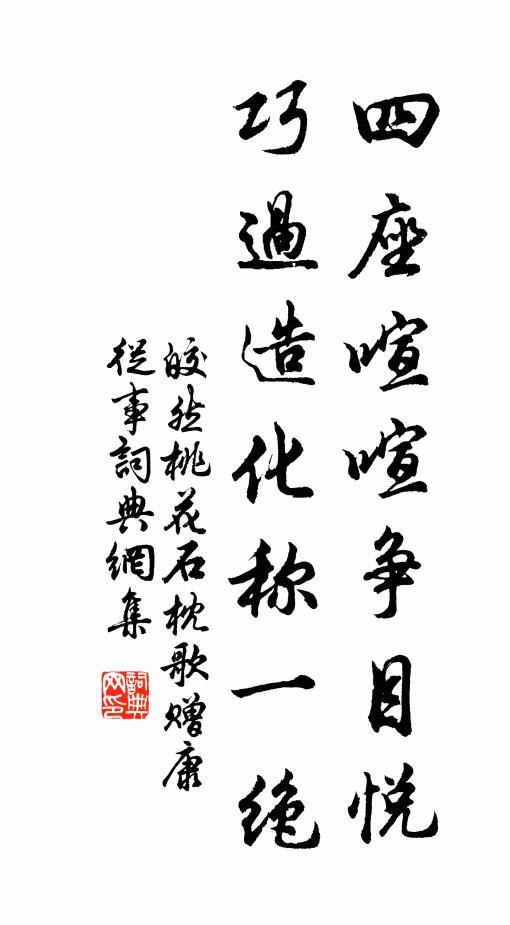 四座喧喧争目悦
巧過造化称一绝
皎然桃花石枕歌赠康
從事詞典網集
詞典网印